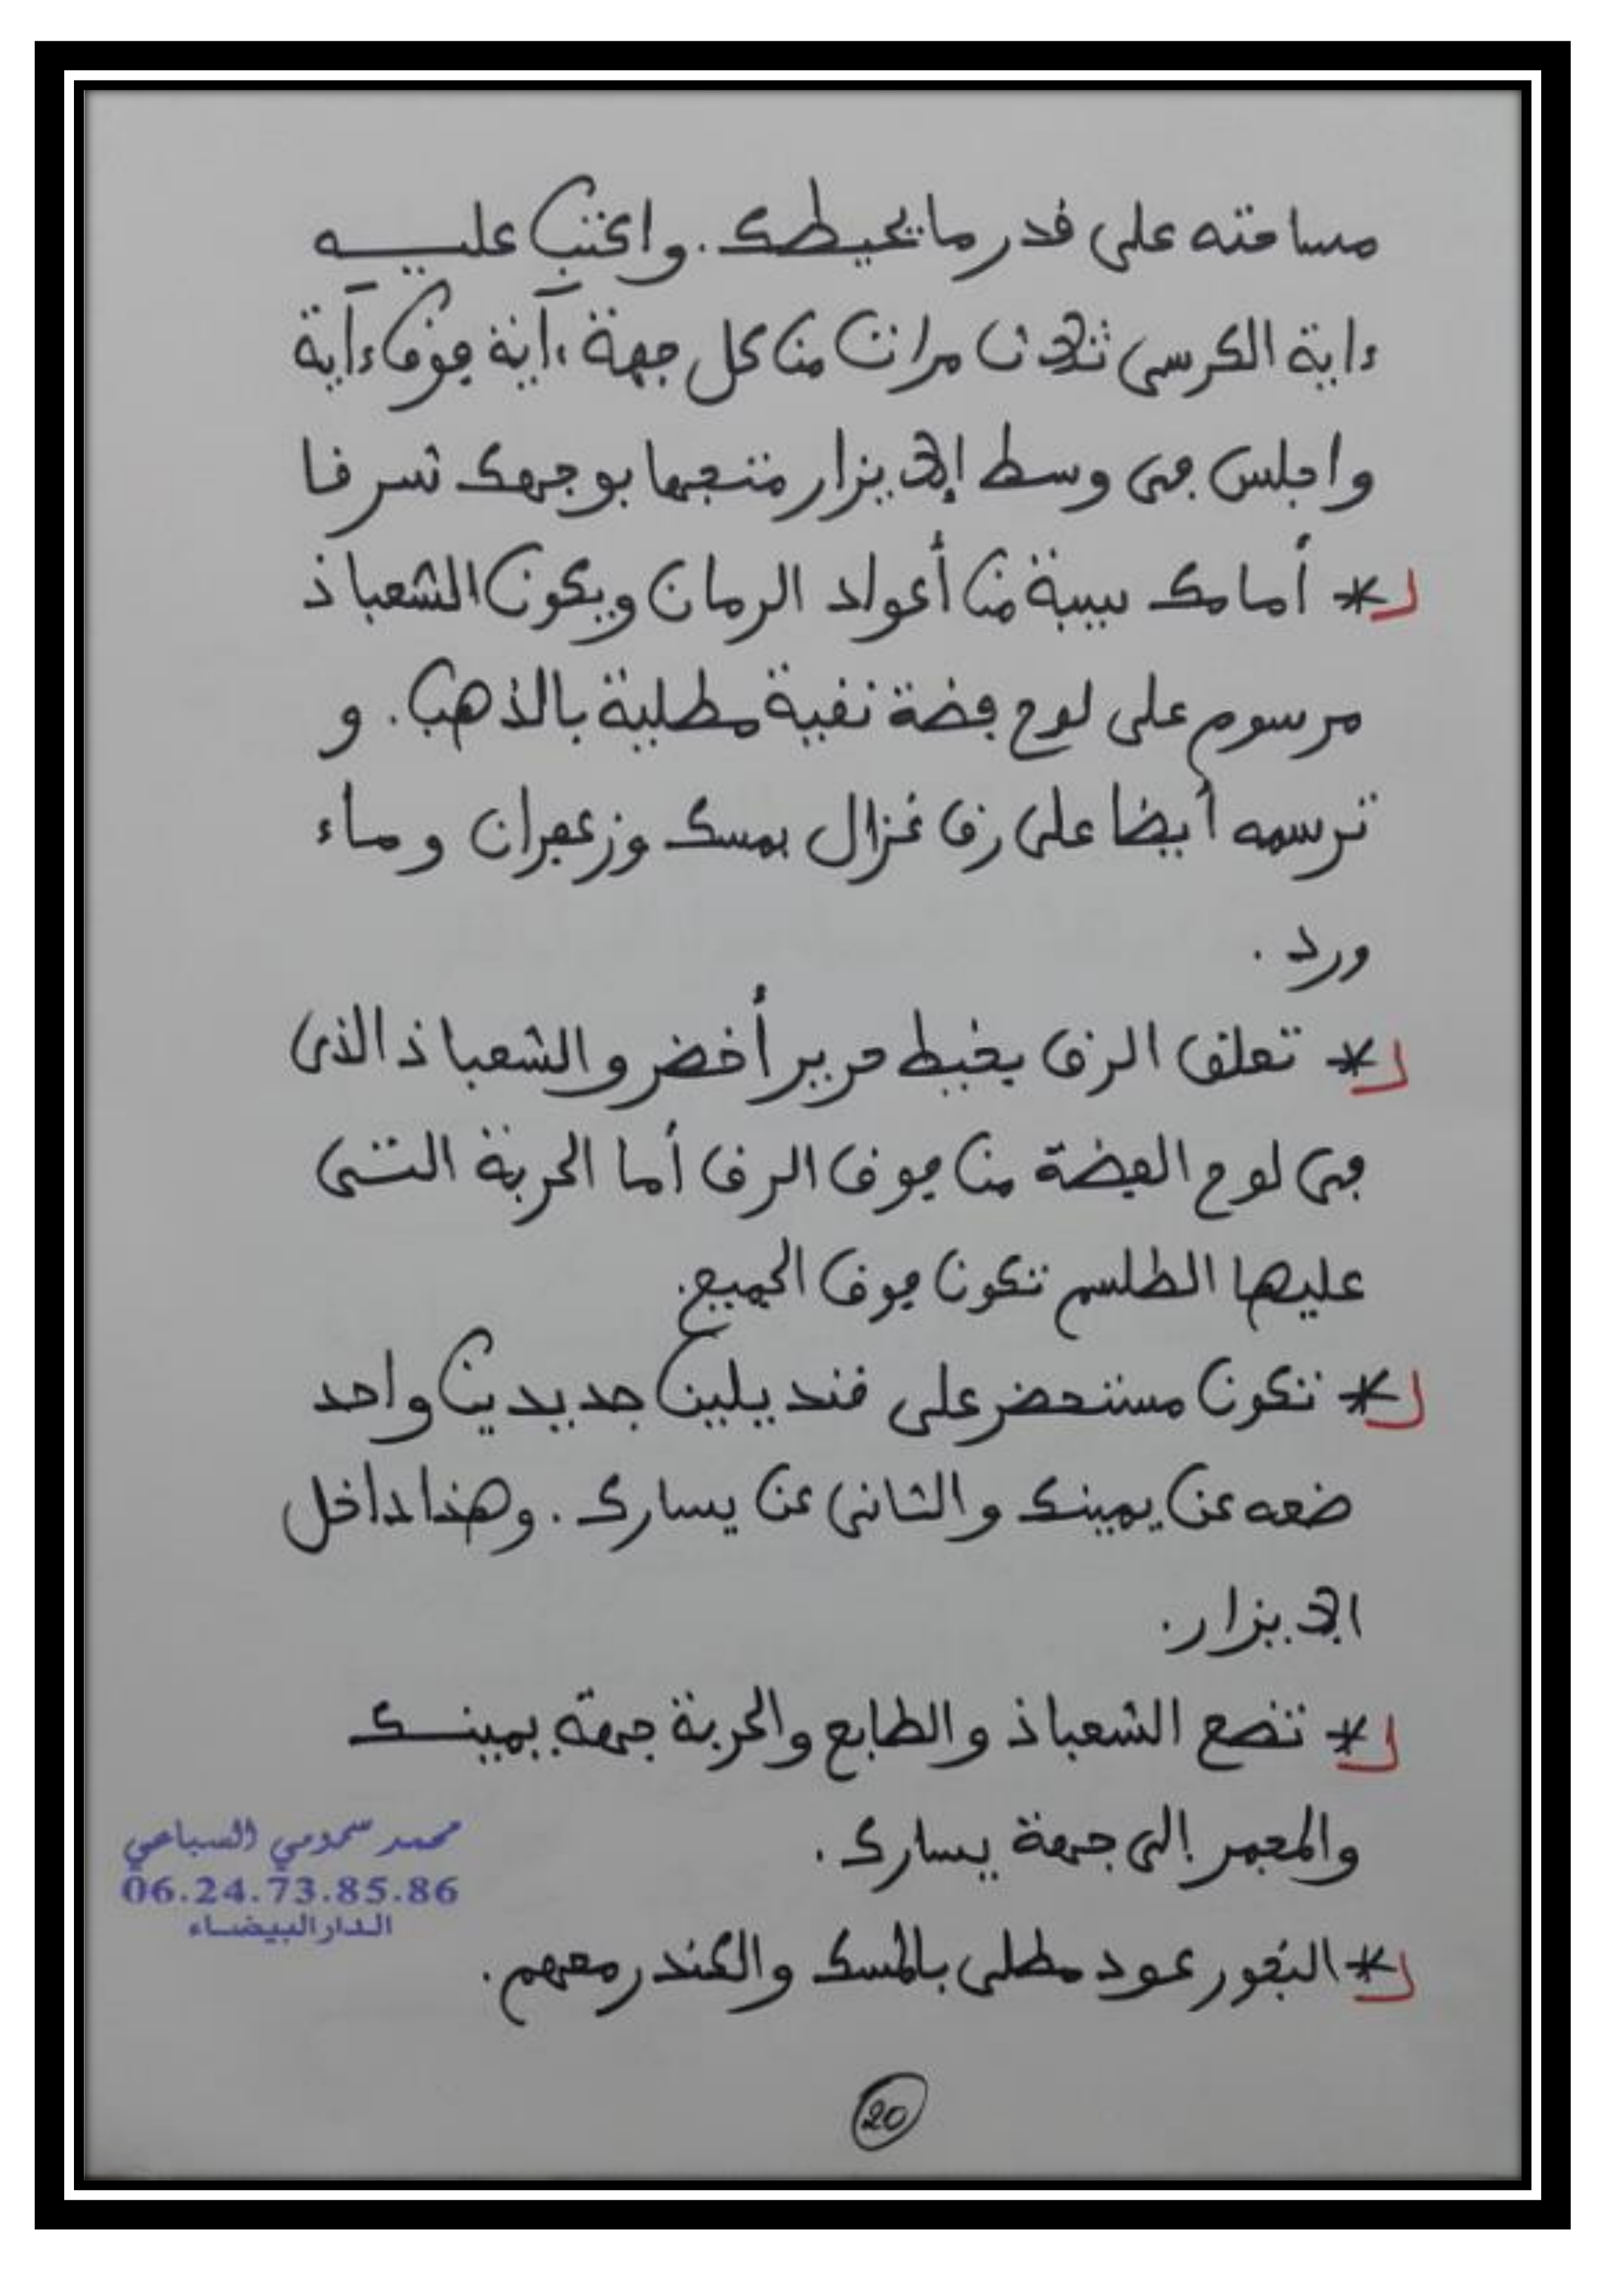 مسافته على قدر ما يحيطك . واكتب عليه
ءاية الكرسي ثلاث مرات من كل جهة ، آية فوق ءاية
واجلس في وسط الإيزار متجها بوجهك شرقا
* أمامك بيبة من أعواد الرمان ويكون الشعباذ
مرسوم على لوح فضة نقية مطلية بالذهب . و
ترسمه أيضا على رق غزال بمسك وزعفران وماء
ورد .
* تعلق الرق بخيط حرير أخضر والشعباذ الذي
في لوح الفضة من فوق الرق أما الحربة التي
عليها الطلسم تكون فوق الجميع .
* تكون مستحضر على قنديلين جديدين واحد
ضعه عن يمينك والثاني عن يسارك . وهذا داخل
الإيزار .
* تضع الشعباذ والطابع والحربة جهة يمينك
والمجمر إلى جهة يسارك .
محمد سمومي السباعي
06.24.73.85.86
الدار البيضاء
* البخور عود مطلي بالمسك والكندر معهم .
20